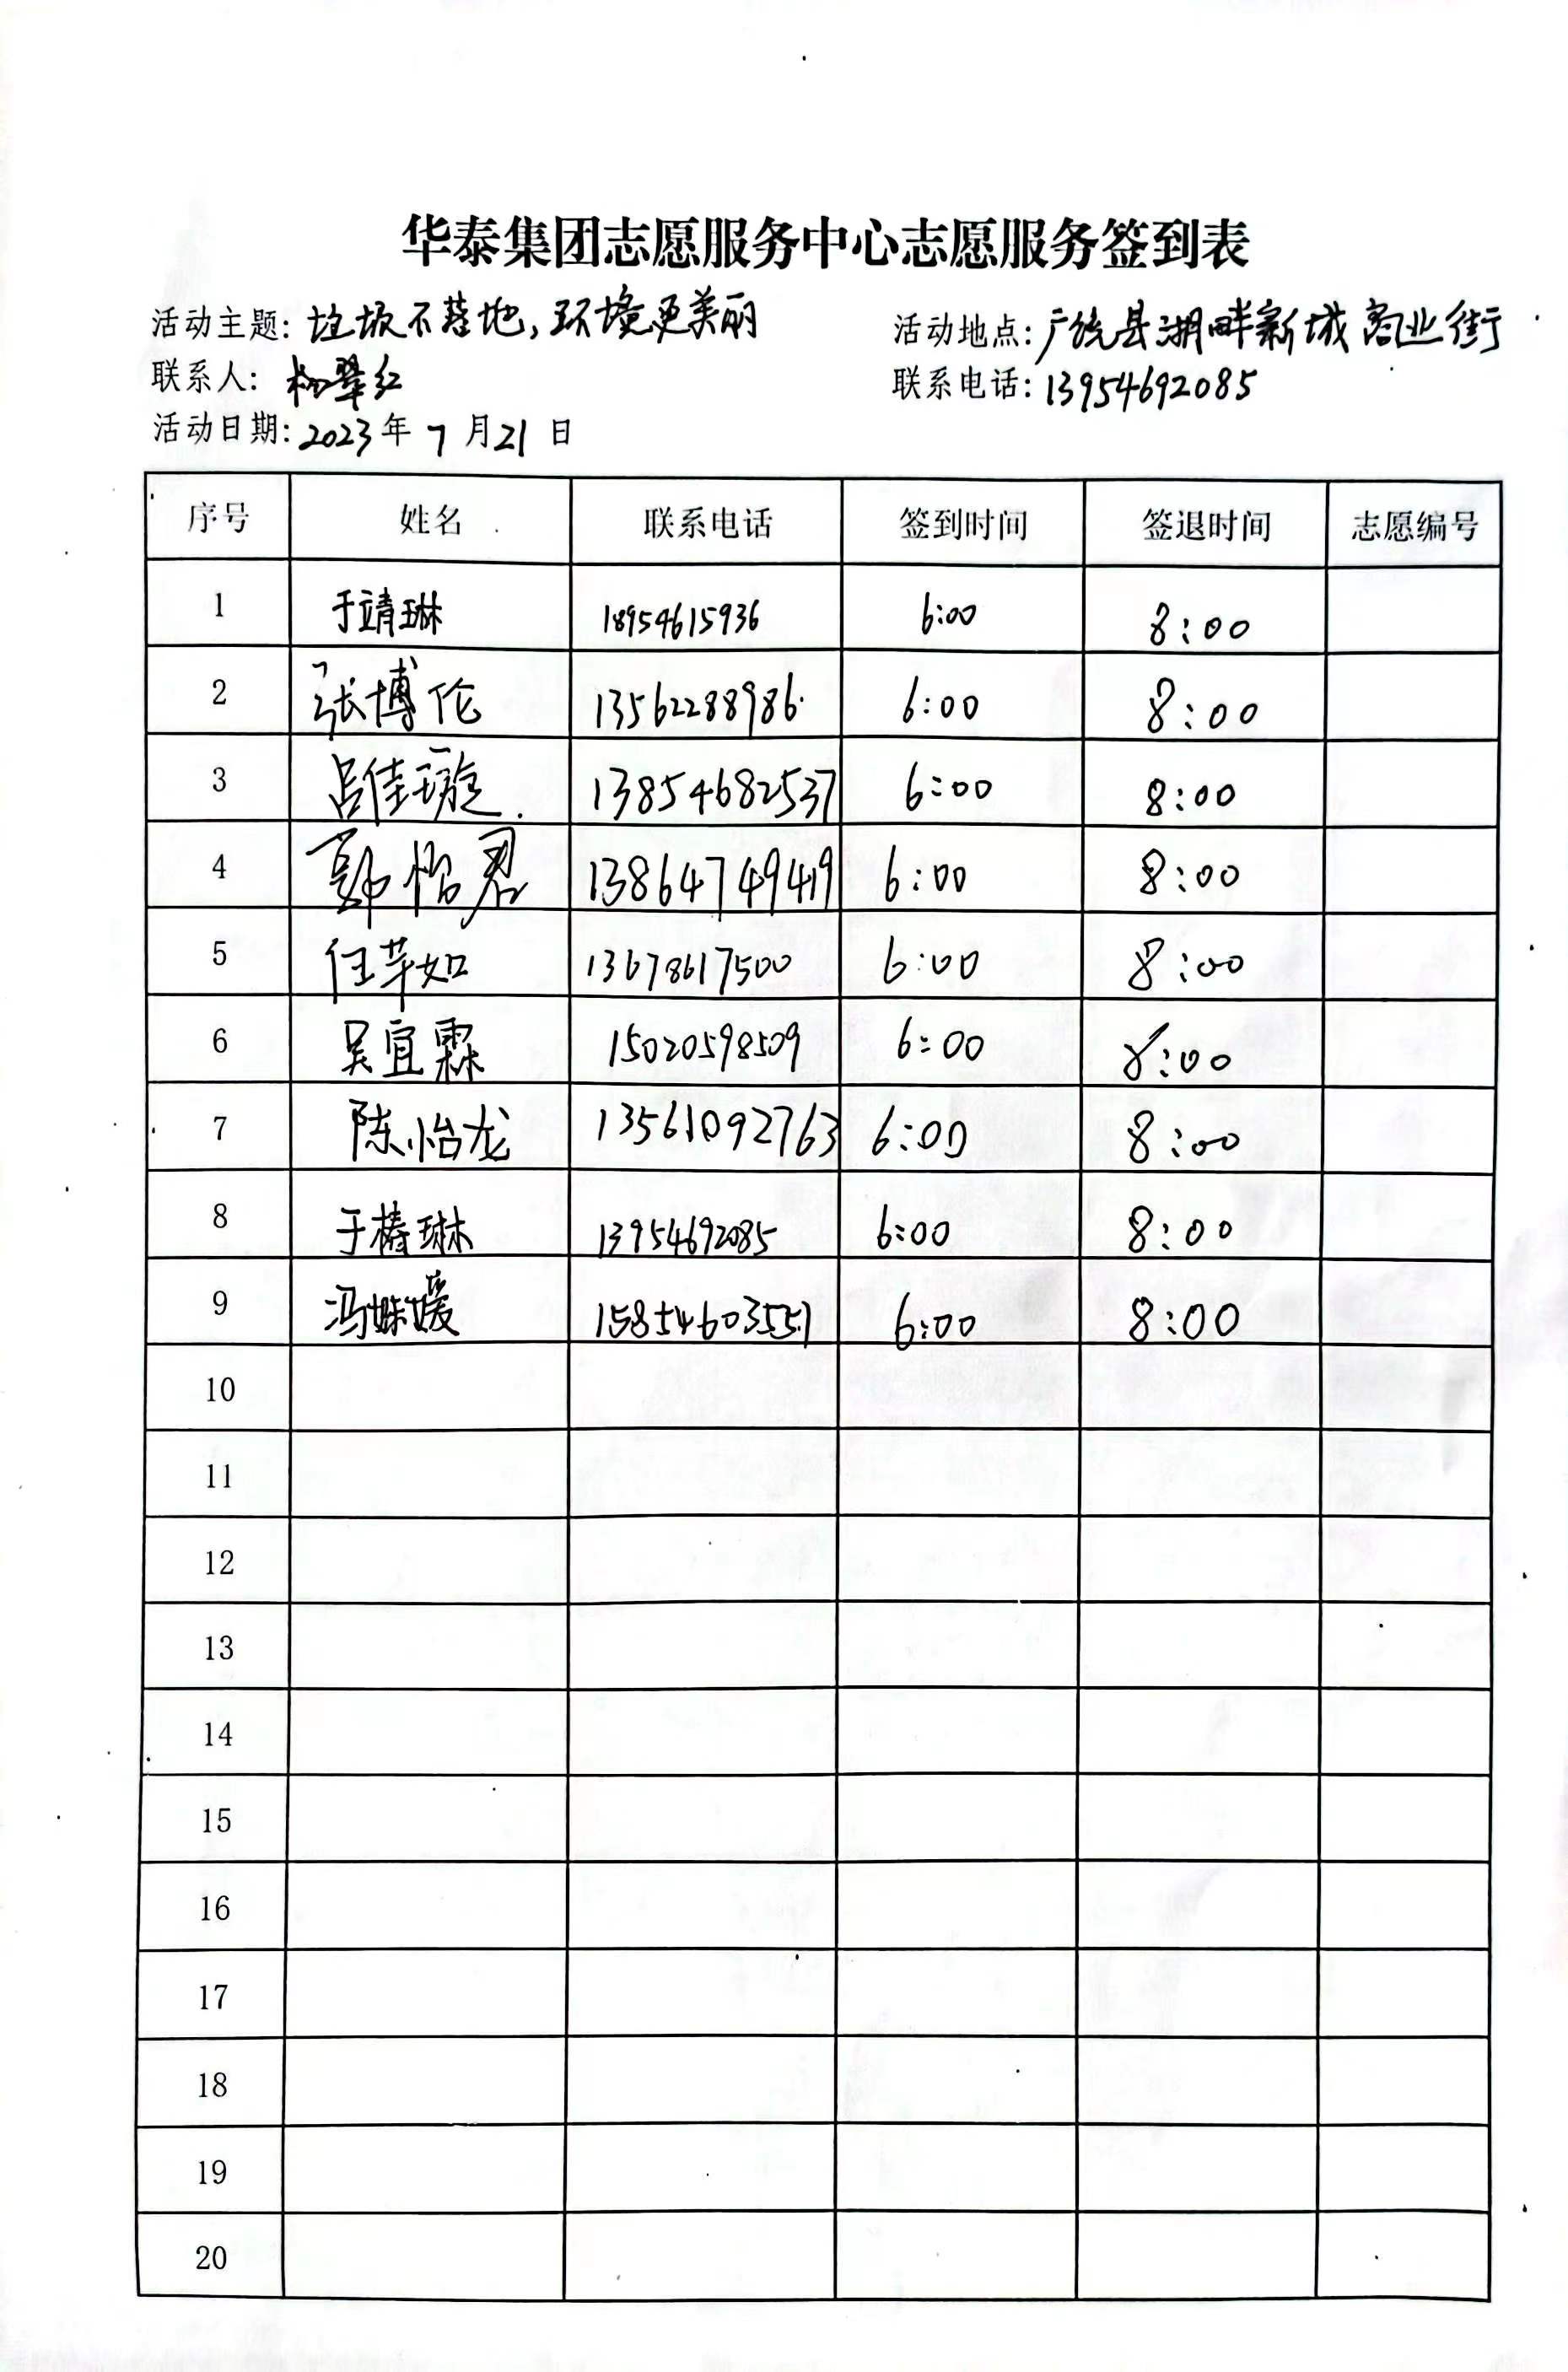 华泰集团志愿服务中心志愿服务签到表
活动主题: 垃圾不落地,环境更美丽 活动地点: 广饶县湖畔新城商业街
联系人: 杨翠红 联系电话: 13954692085
活动日期: 2023年7月21日
序号 姓名 联系电话 签到时间 签退时间 志愿编号
1 于靖琳 18954615936 6:00 8:00
2 张博伦 13562288986 6:00 8:00
3 吕佳璇 13854682537 6:00 8:00
4 郭怡君 13864749419 6:00 8:00
5 任芊如 13678617500 6:00 8:00
6 吴宜霖 15020598509 6:00 8:00
7 陈怡龙 13561092763 6:00 8:00
8 于椿琳 13954692085 6:00 8:00
9 冯姝媛 15854603551 6:00 8:00
10
11
12
13
14
15
16
17
18
19
20